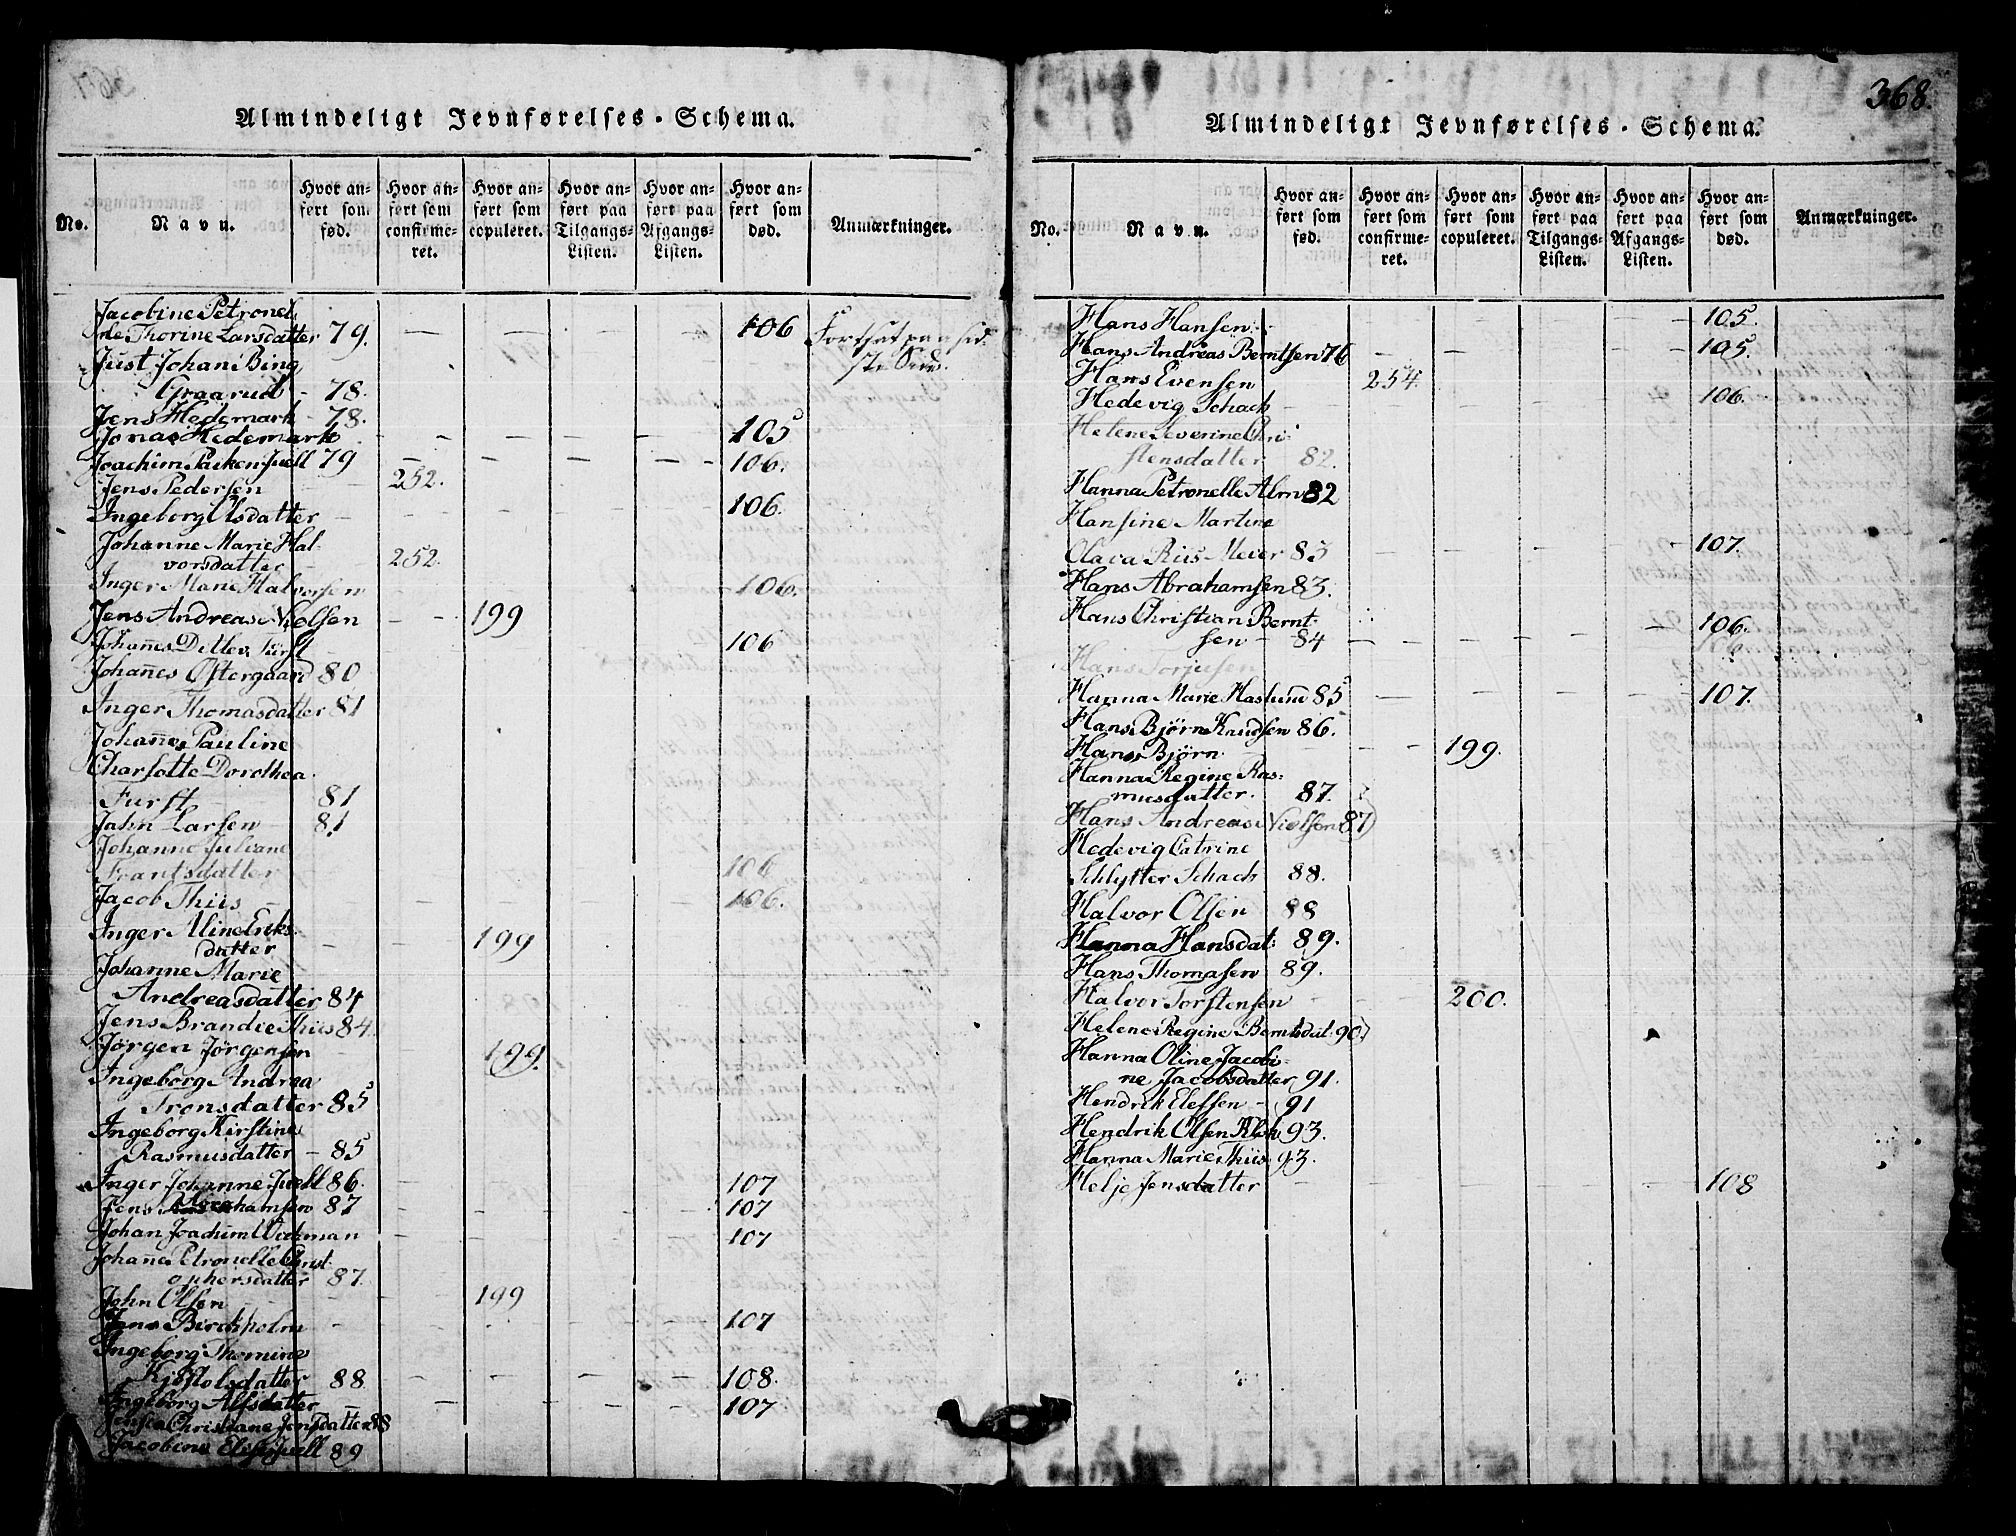 Almindeligt Jevnførelses-Schema.
No. Navn. Hvor anført som født. Hvor anført som confirmeret. Hvor anført som copuleret. Hvor anført paa Tilgangs-Listen. Hvor anført paa Afgangs-Listen. Hvor anført som død. Anmærkninger.
Jacobine Petronel
le Thorine Larsdatter 79. — — — — 106 Fortsat paa sid
ste Side.
Just Johan Bing
Graarud - 78.
Jens Hedemark - 78.
Jonas Hedemark - - - - - 105
Joachim Parken Juell 79 - - - - - 106.
Jens Pedersen - 252.
Ingeborg Olsdatter - - - - - 106.
Johanne Marie Hal-
vorsdatter - 252.
Inger Marie Halvorsen - 106.
Jens Andreas Nielsen - - 199
Johannes Ditlev Fürst 106
Johannes Østergaard 80
Inger Thomasdatter 81
Johannes Pauline
Charlotte Dorothea
Furst 81
Jahn Larsen 81
Johanne Juliane
Frantsdatter 106
Jacob Thiis 106.
Inger Aline Eriks-
datter - - 199
Johanne Marie
Andreasdatter 84
Jens Brandie Thiis 84.
Jørgen Jørgensen 199.
Ingeborg Andrea
Tronsdatter 85
Ingeborg Kirstine
Rasmusdatter - 85
Inger Johanne Juell 86. 107
Jens Abrahamsen 87 107
Johan Joachim - - 107
Johanne Petronelle Christ-
ophersdatter 87.
John Olsen - 199
Jens Birckholm - 107
Ingeborg Thomine
Kjøstolsdatter 88 - - - - 108.
Ingeborg Alfsdatter - - - 107
Christiane Jensdatter 88
Jacobine Juell 89
368.
Almindeligt Jevnførelses-Schema.
No. Navn. Hvor anført som fød. Hvor anført som confirmeret. Hvor anført som copuleret. Hvor anført paa Tilgangs-Listen. Hvor anført paa Afgangs-Listen. Hvor anført som død. Anmærkninger.
Hans Hansen 105.
Hans Andreas Berntsen 76 - - - - 105.
Hans Evensen 254.
Hedevig Schach - 106.
Helene Severine Chri-
stensdatter 82.
Hanna Petronelle Alm 82
Hansine Martine
Olava Riis Meier 83 - - - - 107.
Hans Abrahamsen 83.
Hans Christian Bernt-
sen - 84 - - - - 106.
Hans Torjusen 106
Hanna Marie Haslund 85 - - - - 107.
Hans Bjørn Knudsen 86.
Hans Bjørn - 199.
Hanna Regine Ras-
musdatter. 87.
Hans Andreas Nielsen 87
Hedevig Catrine
Schlytter Schach 88.
Halvor Olsen 88
Hanna Hansdat: 89.
Hans Thomasen 89.
Halvor Torstensen - - 200.
Helene Regine Berntsdat. 90
Hanna Oline Jacobi-
ne Jacobsdatter 91.
Hendrik Elefsen - 91
Hendrik Olsen 93.
Hanna Marie Thiis 93.
Helje Jensdatter - - - - - 108